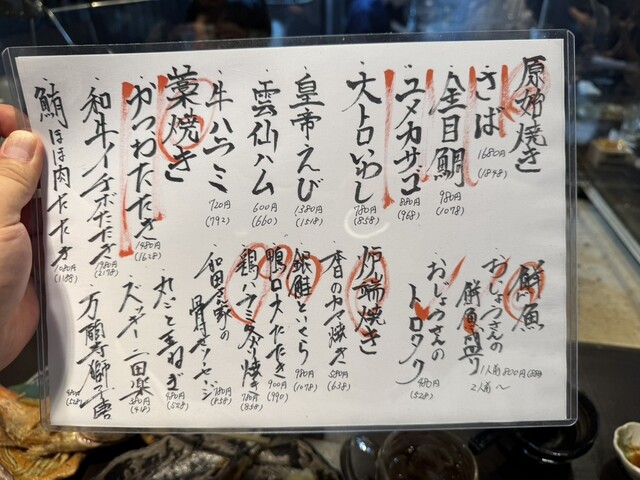 原始焼き
・さば 1680円 (1848)
・金目鯛 980円 (1078)
・ユメカサゴ 880円 (968)
・大トロいわし 780円 (858)
・皇帝えび 1380円 (1518)
・雲仙ハム 600円 (660)
・牛ハラミ 720円 (792)
藁焼き
・かつおたたき 1480円 (1628)
・和牛イチボたたき 1980円 (2178)
・鮪ほほ肉たたき 1080円 (1188)
鮮魚
・おじょうさんの
鮮魚盛り
1人前 800円 (880)
2人前〜
・おじょうさんの
トロタク 480円 (528)
炉端焼き
・春のカマ焼き 580円 (638)
・銀鮭といくら 980円 (1078)
・鴨ロースたたき 900円 (990)
・鶏ハラミ炙り焼き 780円 (858)
・和田さ野の
骨付きソーセージ 780円 (858)
・丸ごと玉ねぎ 480円 (528)
・ズッキーニ田楽 380円 (418)
・万願寺獅子唐 480円 (528)